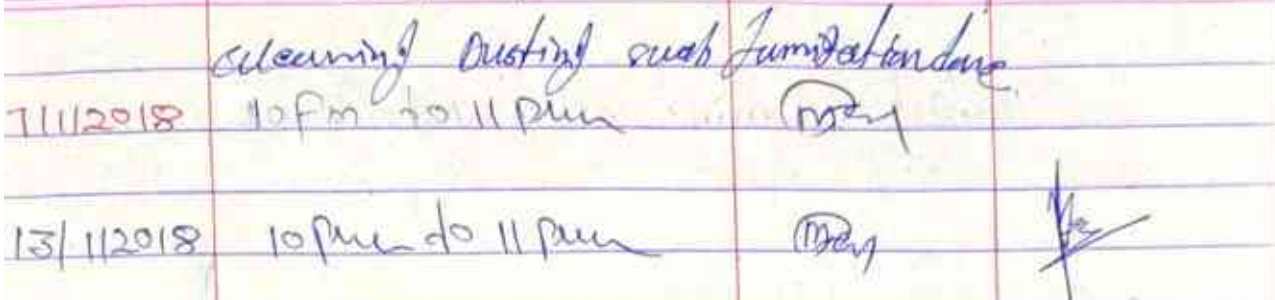 cleaning Dusting swab fumigation done
7/1/2018 10pm to 11pm
13/1/2018 10pm to 11pm